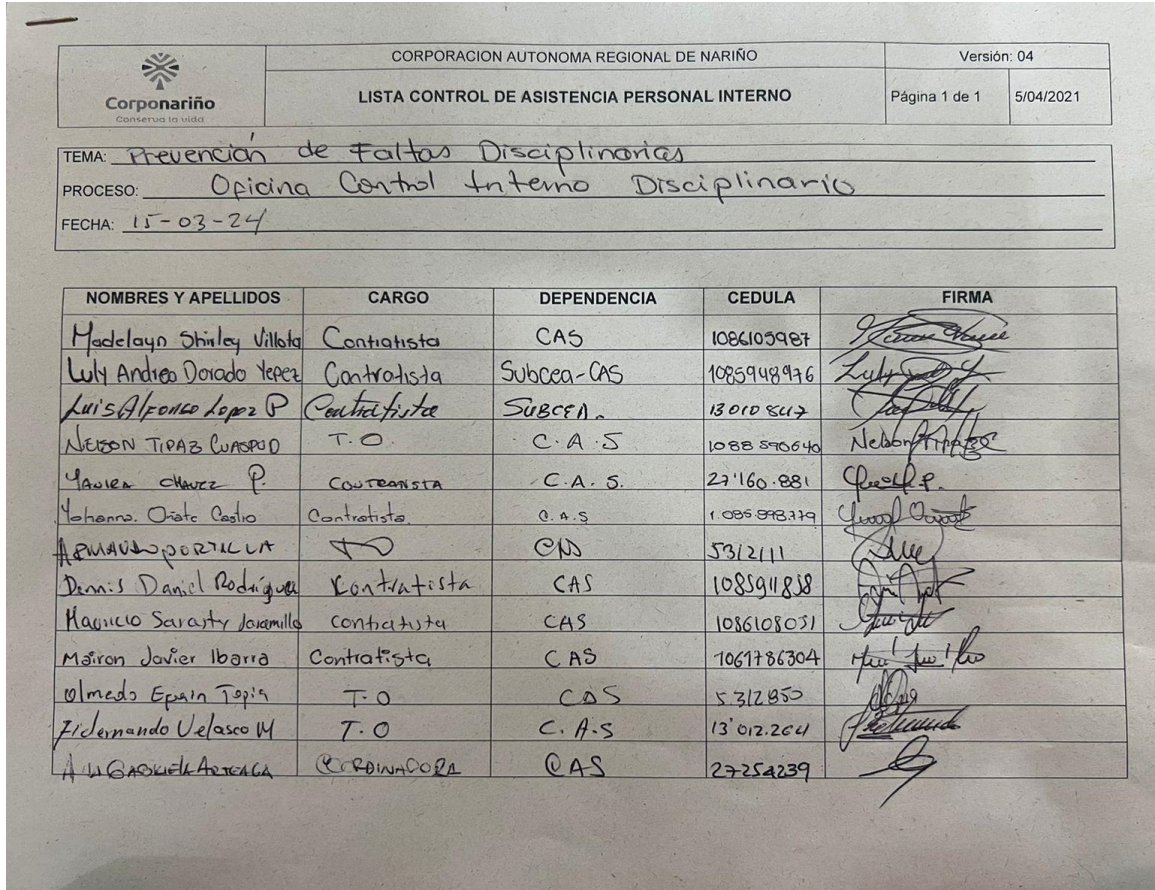 CORPORACION AUTONOMA REGIONAL DE NARIÑO
Versión: 04
Corponariño
Conserva la vida
LISTA CONTROL DE ASISTENCIA PERSONAL INTERNO
Página 1 de 1
5/04/2021
TEMA: Prevención de Faltas Disciplinarias
PROCESO: Oficina Control Interno Disciplinario
FECHA: 15-03-24
NOMBRES Y APELLIDOS CARGO DEPENDENCIA CEDULA FIRMA
Madelayn Shirley Villota Contratista CAS 1086105987
Luly Andrea Dorado Yepez Contratista Subcea-CAS 1085948976
Luis Alfonso Lopez P Contratista SUBCEA. 13010847
NELSON TIPAZ CUASPUD T.O. C.A.S 1088590640 Nelson
YANIRA CHAVEZ P. CONTRATISTA C.A.S. 27'160.881
Yohanna Castro Contratista. C.A.S
PORTILLA TO 5312111
Dennis Daniel Rodríguez Contratista CAS 1085911858
Mauricio Sarasty Jaramillo contratista CAS 1086108031
Mairon Javier Ibarra Contratista CAS 1061786304
Olmedo Epain Tapia T.O CAS 5312850
Fidernando Velasco M T.O C.A.S 13'012.264
GABRIELA ARTEAGA COORDINADORA CAS 27254239